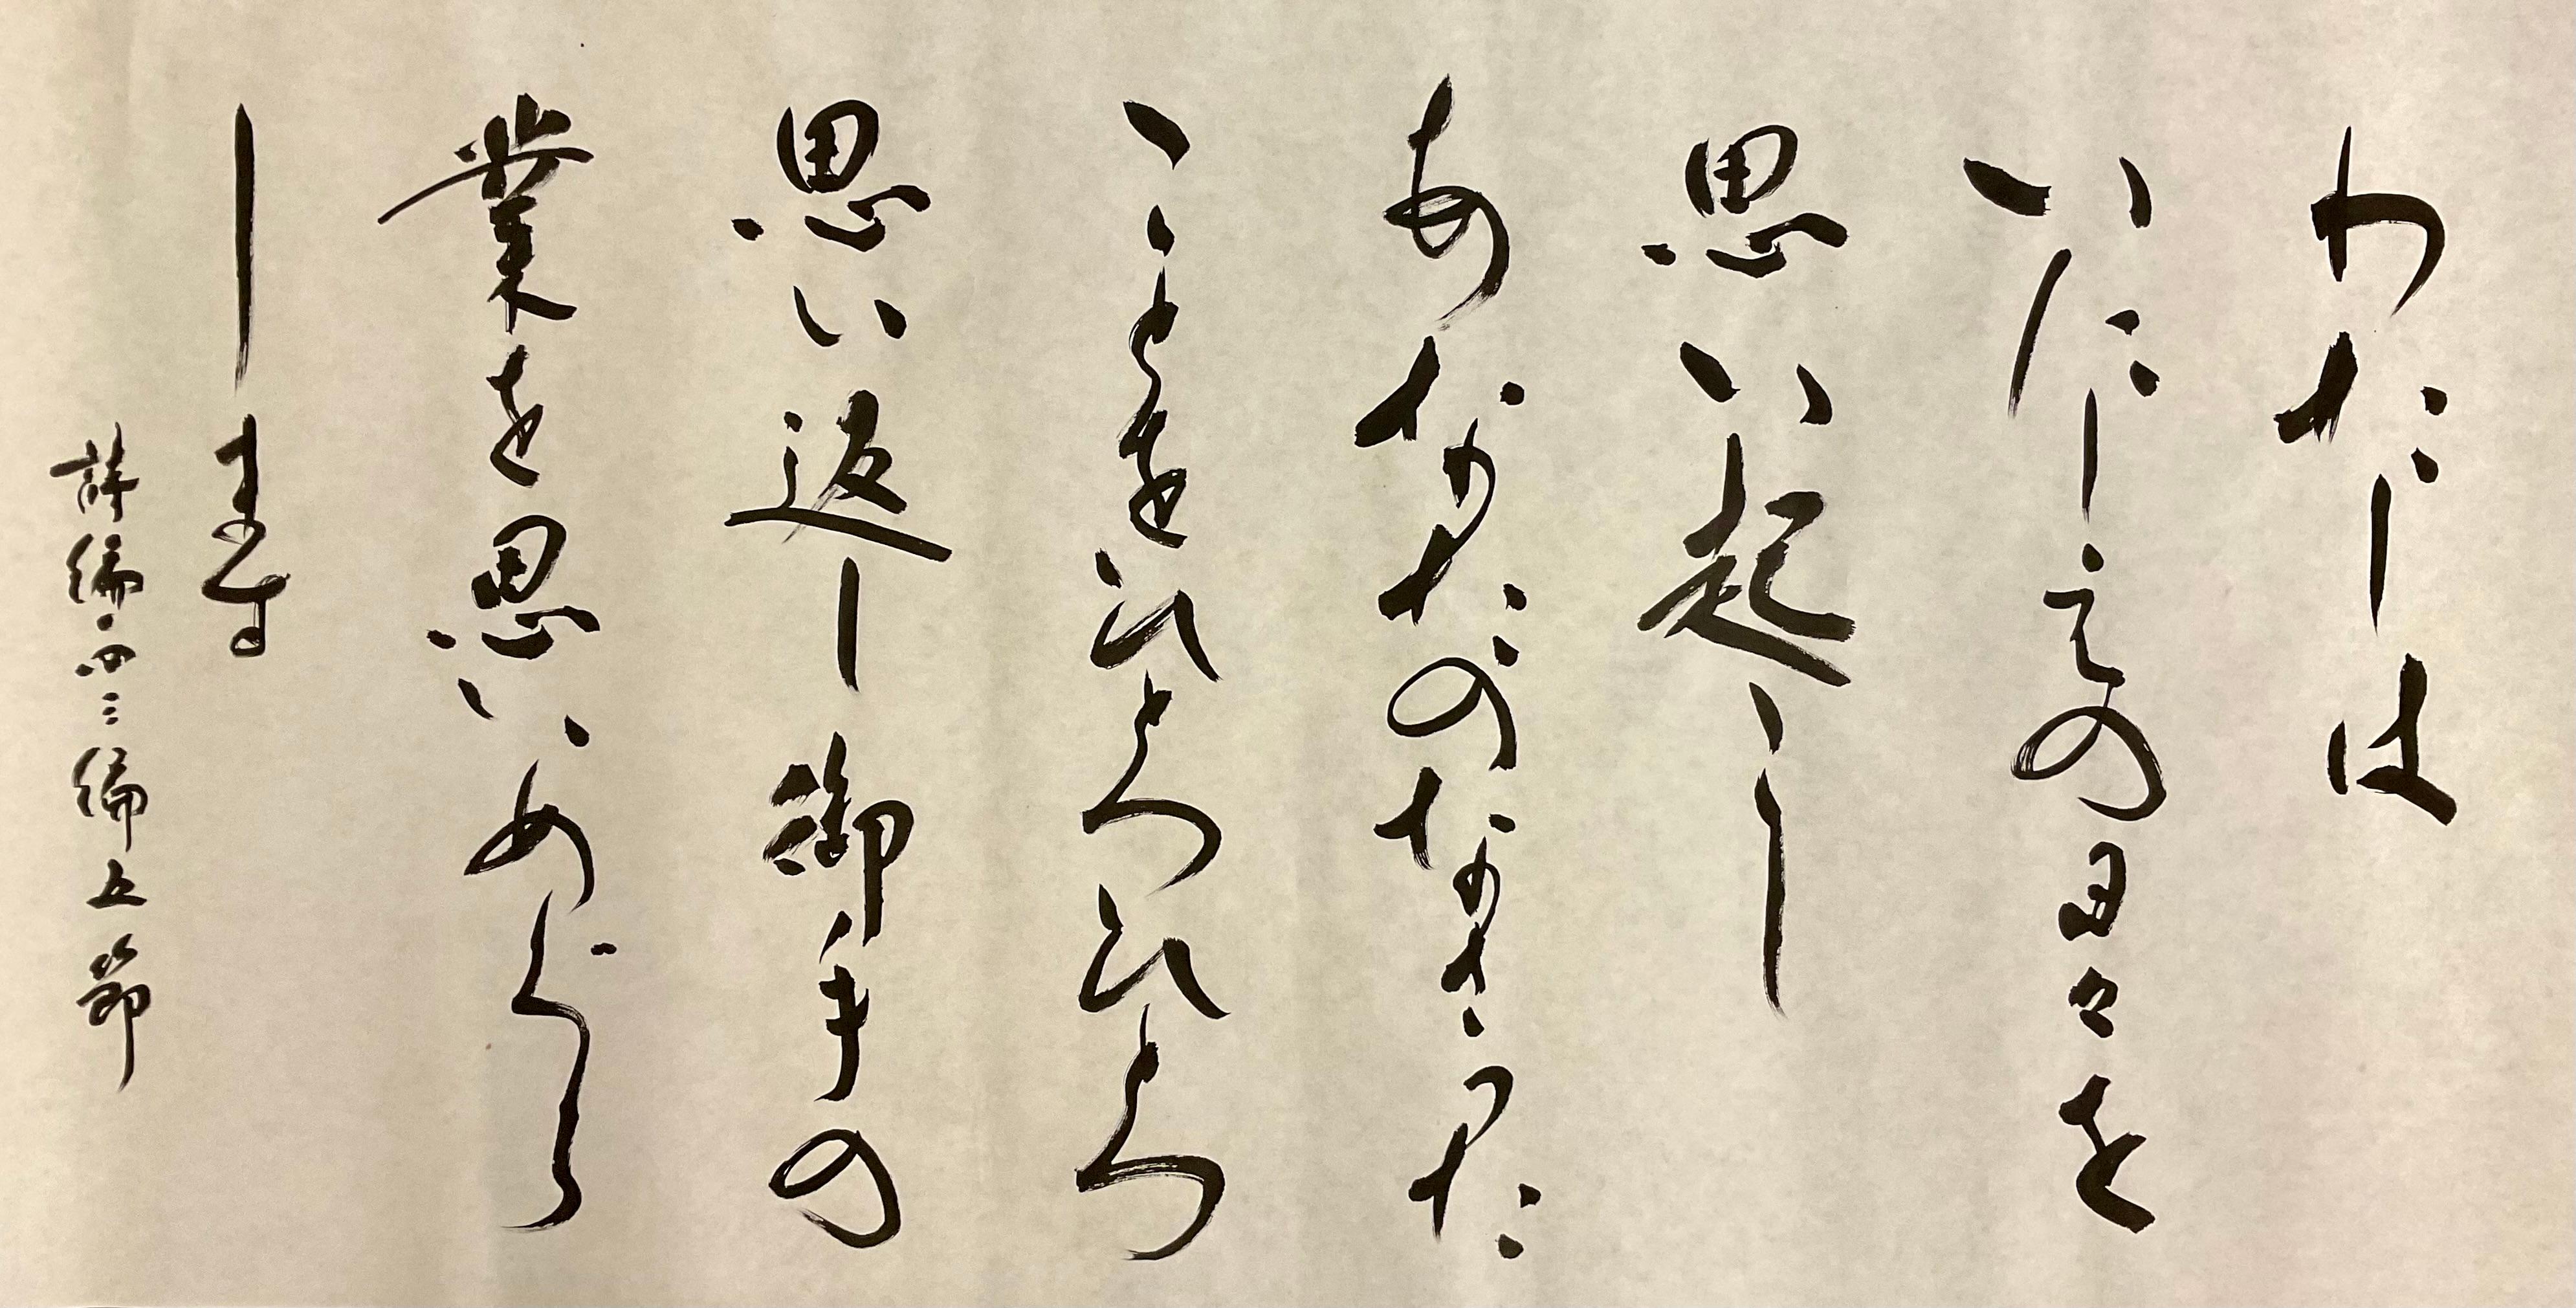 わたしは
いにしえの日々を
思い起こし
あなたのなさった
ことをひとつひとつ
思い返し御手の
業を思いめぐら
します
詩編一四三編五節